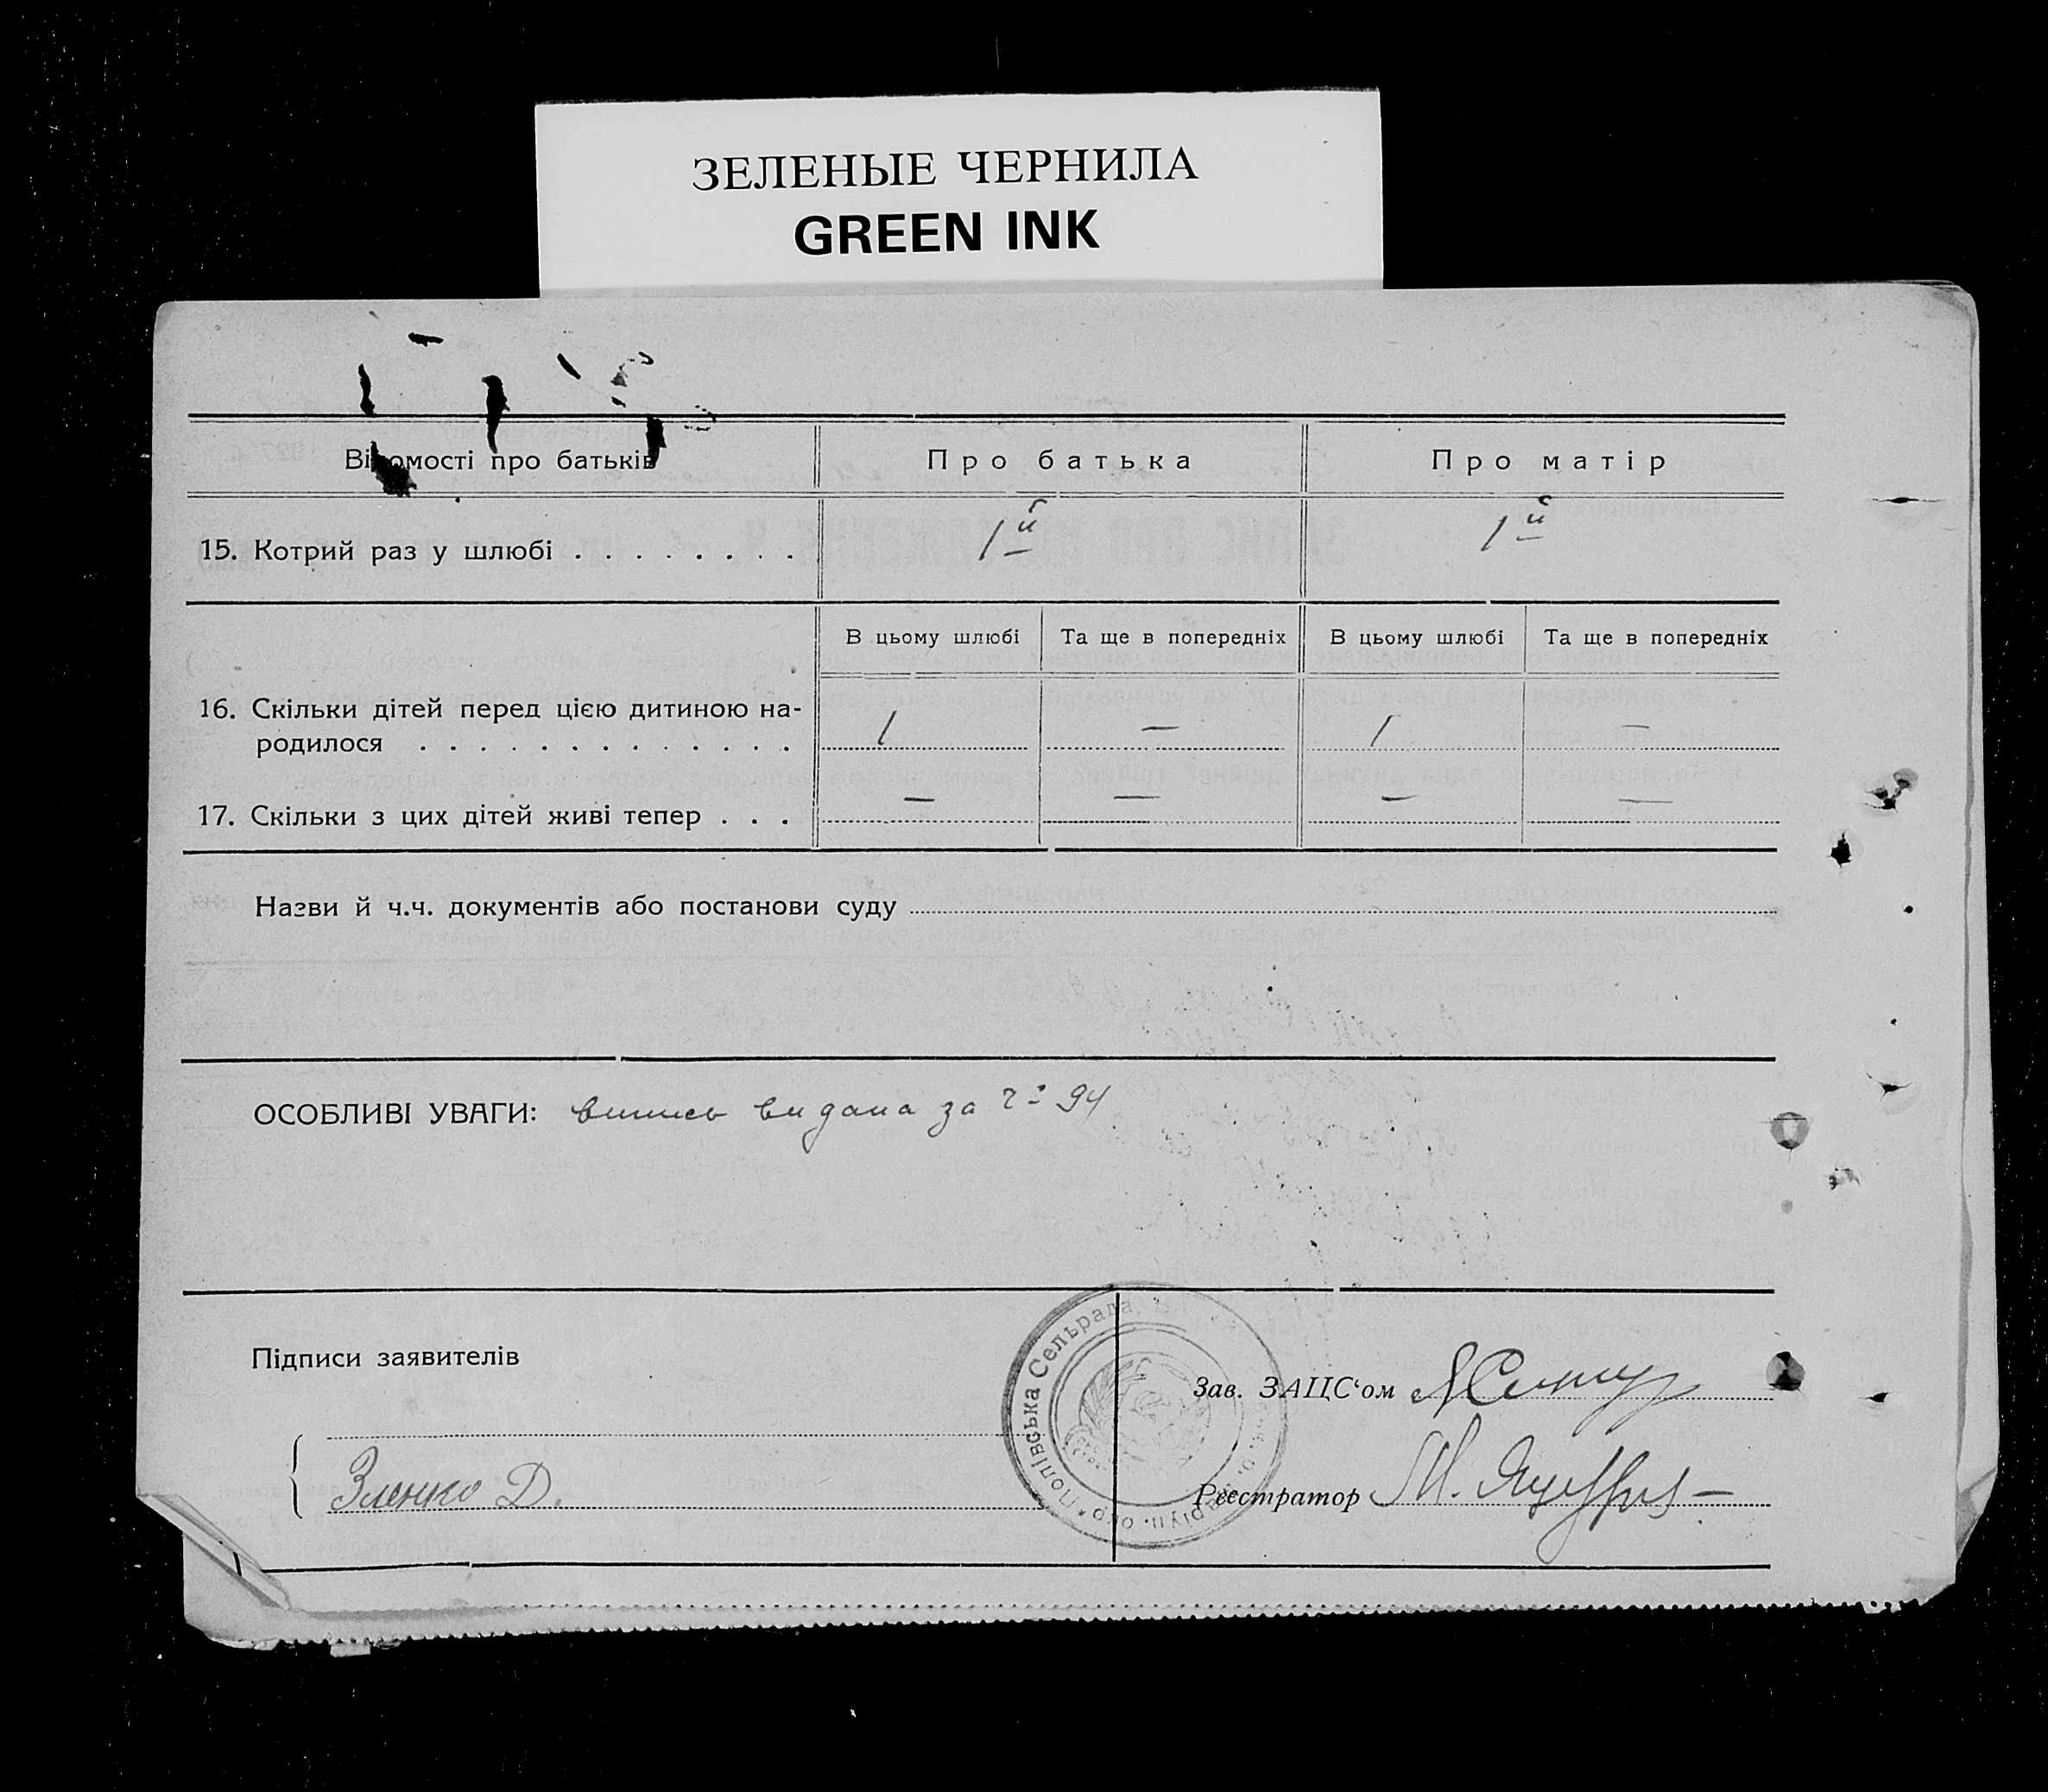 ЗЕЛЕНЫЕ ЧЕРНИЛА
GREEN INK
Відомості про батьків
Про батька
Про матір
15. Котрий раз у шлюбі . . . . . . . .
1й
1й
В цьому шлюбі
Та ще в попередніх
В цьому шлюбі
Та ще в попередніх
16. Скільки дітей перед цією дитиною на-
родилося . . . . . . . . . . . . .
1
—
1
—
17. Скільки з цих дітей живі тепер . . .
—
—
—
—
Назви й ч.ч. документів або постанови суду
ОСОБЛИВІ УВАГИ: випись видана за ч. 94
Підписи заявителів
Зленко Д.
Попівська Сельрада
Зав. ЗАЦС‘ом
Реєстратор М.